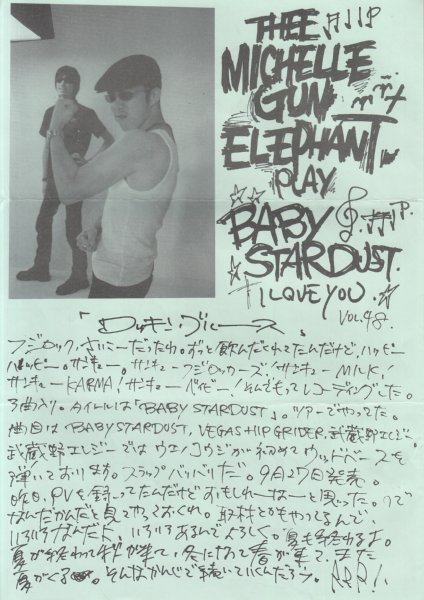 THEE
MICHELLE
GUN
ELEPHANT
PLAY
BABY
STARDUST.
I LOVE YOU
VOL.48.
「ロッキン・ブルース」
フジロック、さいこーだったわ。ずっと飲んだくれてたんだけど、ハッピー
ハッピー。サンキュー。サンキューフジロッカーズ!サンキューMILK!
サンキューKARMA!サンキューベイビー!そんでもってレコーディングした。
3曲入り。タイトルは「BABY STARDUST」。ツアーでやってた。
曲目は BABY STARDUST, VEGAS HIP GRIDER, 武蔵野エレジー。
武蔵野エレジーではウエノコウジが初めてウッドベースを
弾いております。スラップバリバリだ。9月27日発売。
昨日、PVを録ってたんだけどおもしれーなーと思った。ので
なんだかんだと見てやっておくれ。取材とかもやってるんで、
いろいろなんだよ、いろいろあるんでよろしく。夏も終わるよ。
夏が終わって秋が来て、冬になって春が来て、また
夏がくる。そんなかんじで続いていくんだろう。